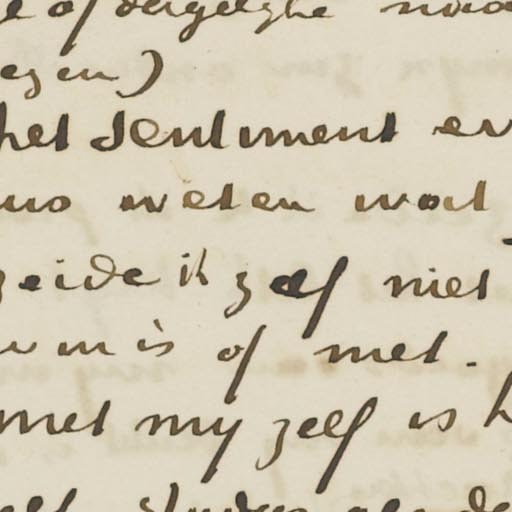 of dergelyke
egen)
het sentiment er
weten wat
zeide ik zelf niet
is of met.
met myzelf is h